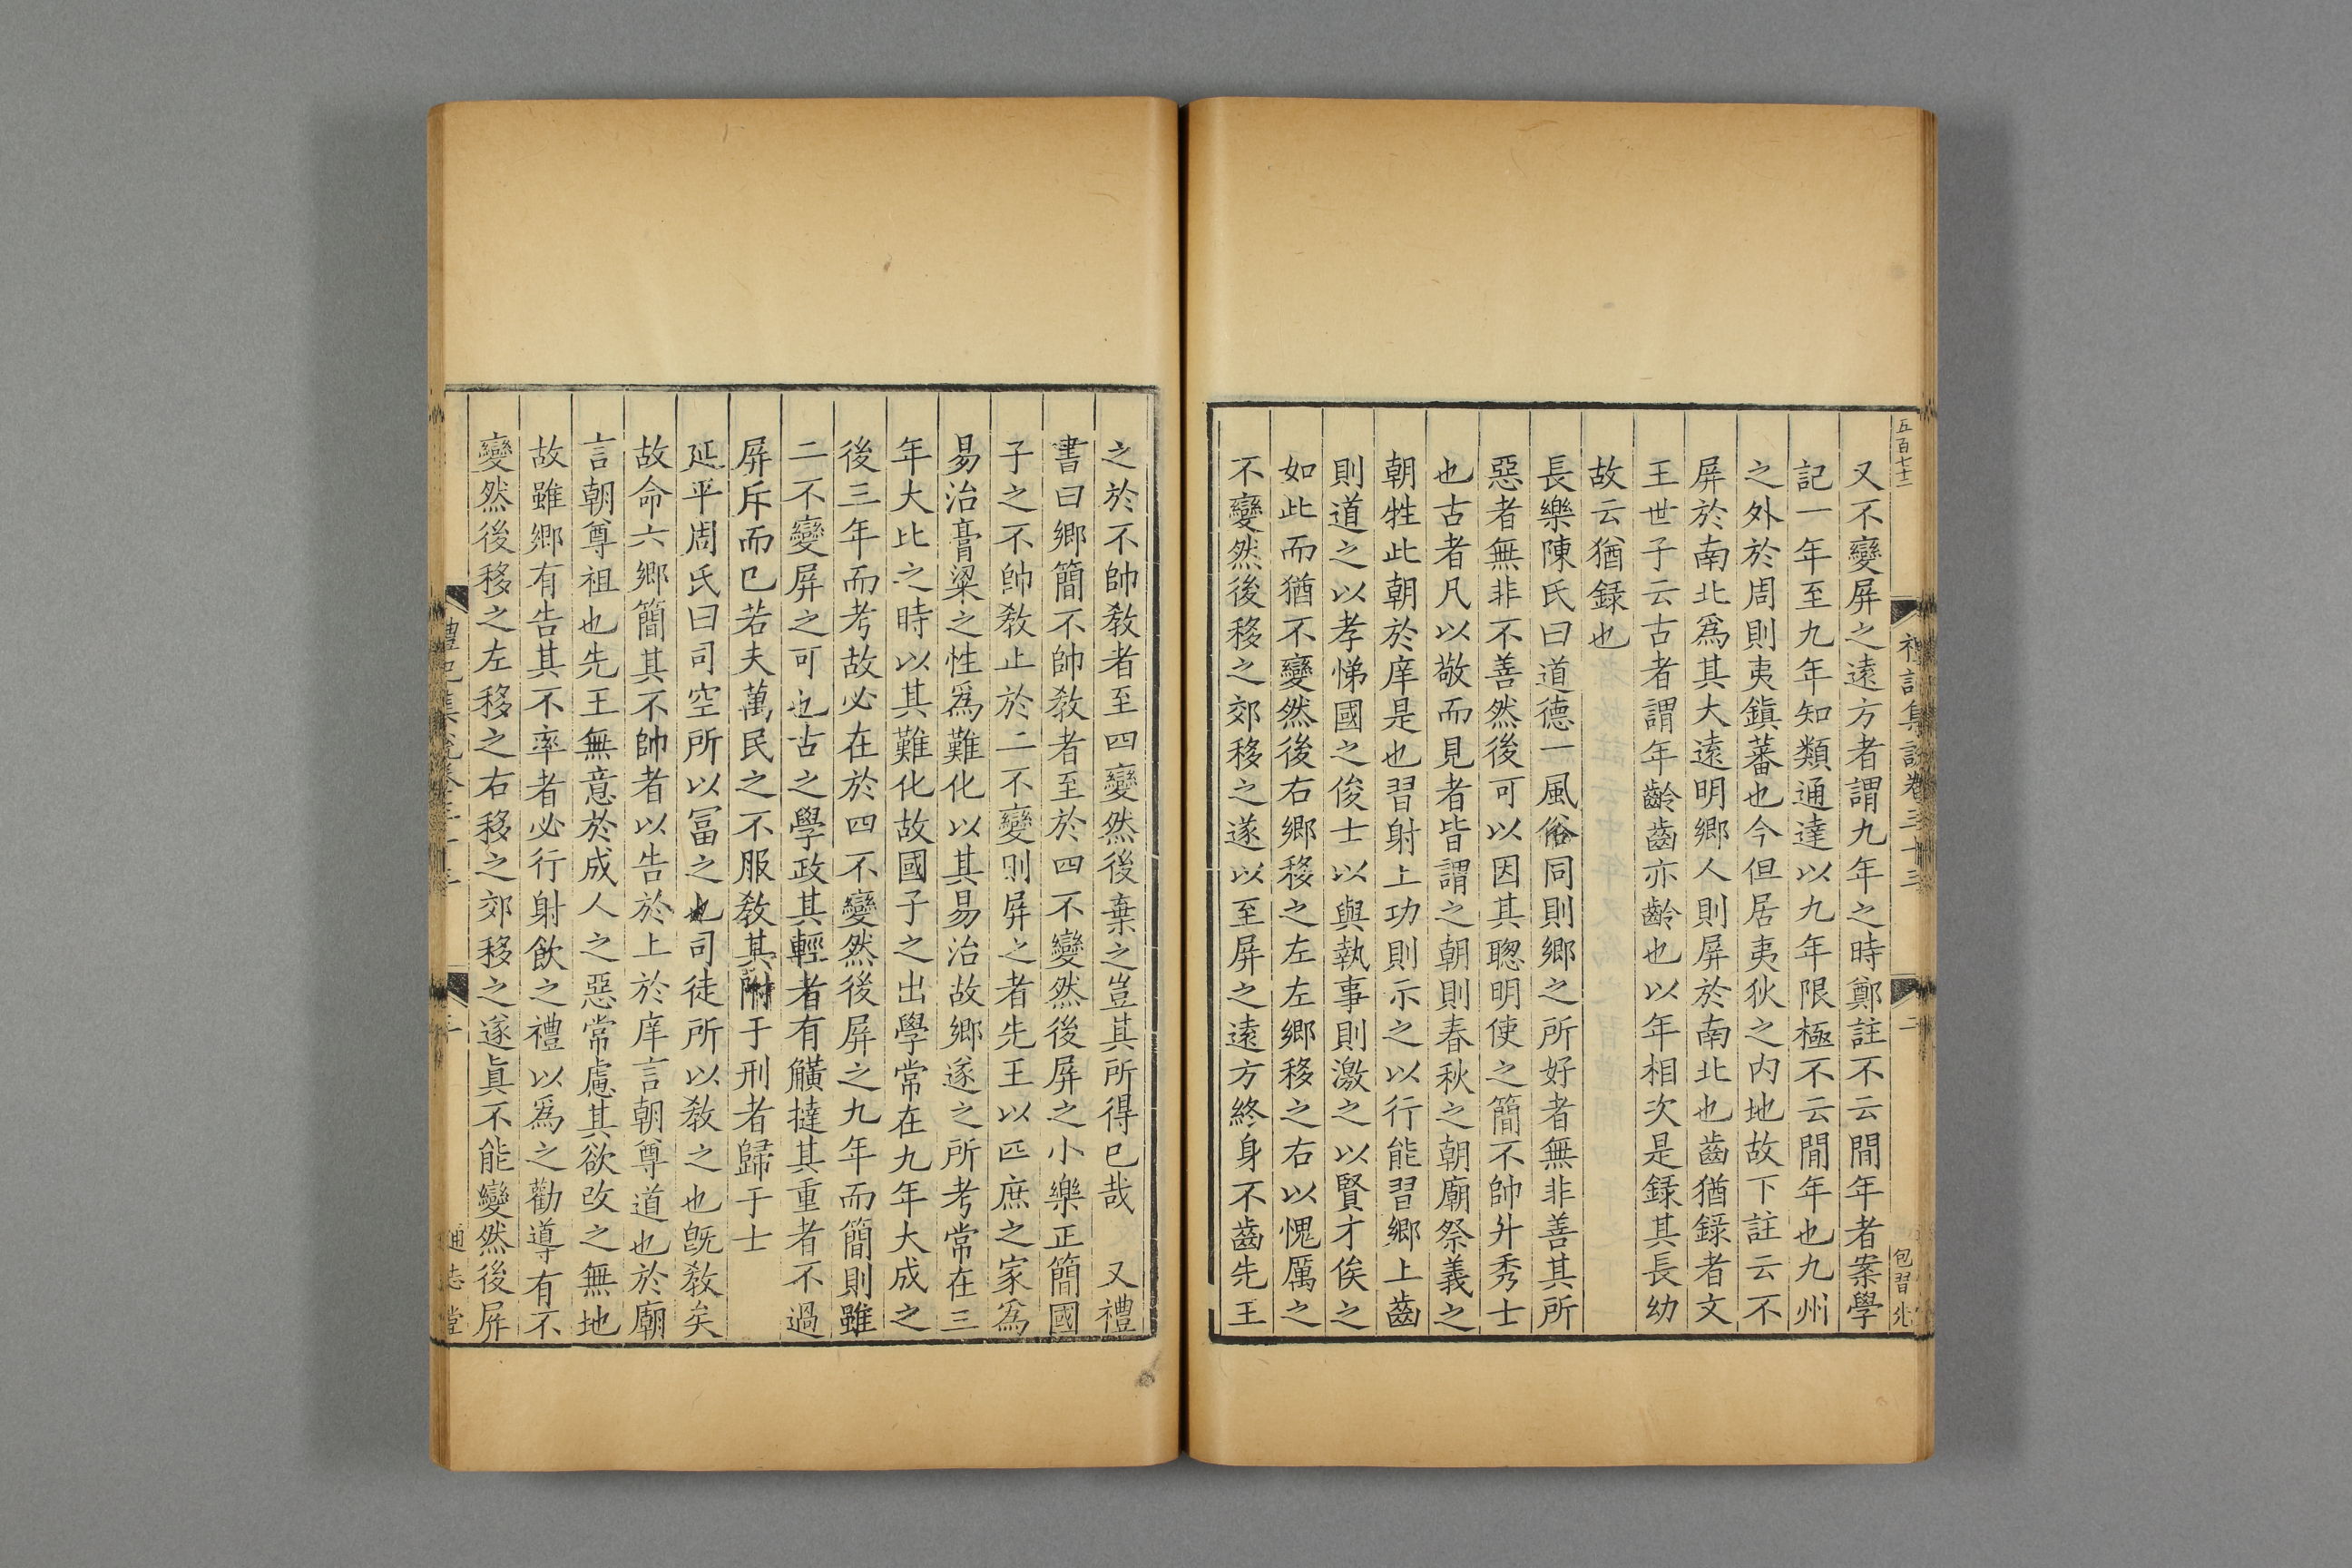 五百七十二
禮記集說卷三十三
二
包習先
又不變屏之遠方者謂九年之時鄭註不云閒年者案學
記一年至九年知類通達以九年限極不云閒年也九州
之外於周則夷鎭蕃也今但居夷狄之内地故下註云不
屏於南北爲其大遠明鄉人則屏於南北也齒猶録者文
王世子云古者謂年齡齒亦齡也以年相次是録其長幼
故云猶録也
長樂陳氏曰道德一風俗同則鄉之所好者無非善其所
惡者無非不善然後可以因其聦明使之簡不帥升秀士
也古者凡以敬而見者皆謂之朝則春秋之朝廟祭義之
朝牲此朝於庠是也習射上功則示之以行能習鄉上齒
則道之以孝悌國之俊士以與執事則激之以賢才俟之
如此而猶不變然後右鄉移之左左鄉移之右以愧厲之
不變然後移之郊移之遂以至屏之遠方終身不齒先王
之於不帥敎者至四變然後棄之豈其所得已哉　又禮
書曰鄉簡不帥敎者至於四不變然後屏之小樂正簡國
子之不帥敎止於二不變則屏之者先王以匹庶之家爲
易治膏粱之性爲難化以其易治故鄉遂之所考常在三
年大比之時以其難化故國子之出學常在九年大成之
後三年而考故必在於四不變然後屏之九年而簡則雖
二不變屏之可也古之學政其輕者有觵撻其重者不過
屏斥而已若夫萬民之不服敎其附于刑者歸于士
延平周氏曰司空所以冨之也司徒所以敎之也旣敎矣
故命六鄉簡其不帥者以告於上於庠言朝尊道也於廟
言朝尊祖也先王無意於成人之惡常慮其欲改之無地
故雖鄉有告其不率者必行射飲之禮以爲之勸導有不
變然後移之左移之右移之郊移之遂眞不能變然後屏
禮記集說卷三十三
二
通志堂